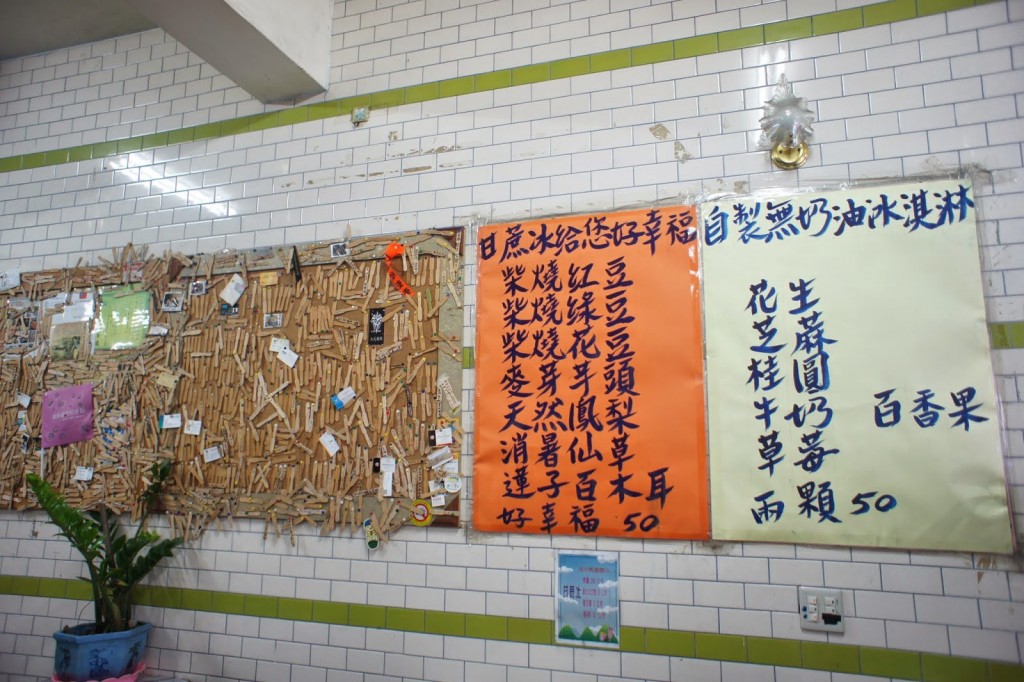 甘蔗冰給您好幸福
柴燒紅豆
柴燒綠豆
柴燒花豆
麥芽芋頭
天然鳳梨
消暑仙草
蓮子百木耳
好幸福 50
自製無奶油冰淇淋
花生
芝蔴
桂圓
牛奶 百香果
草莓
兩顆50